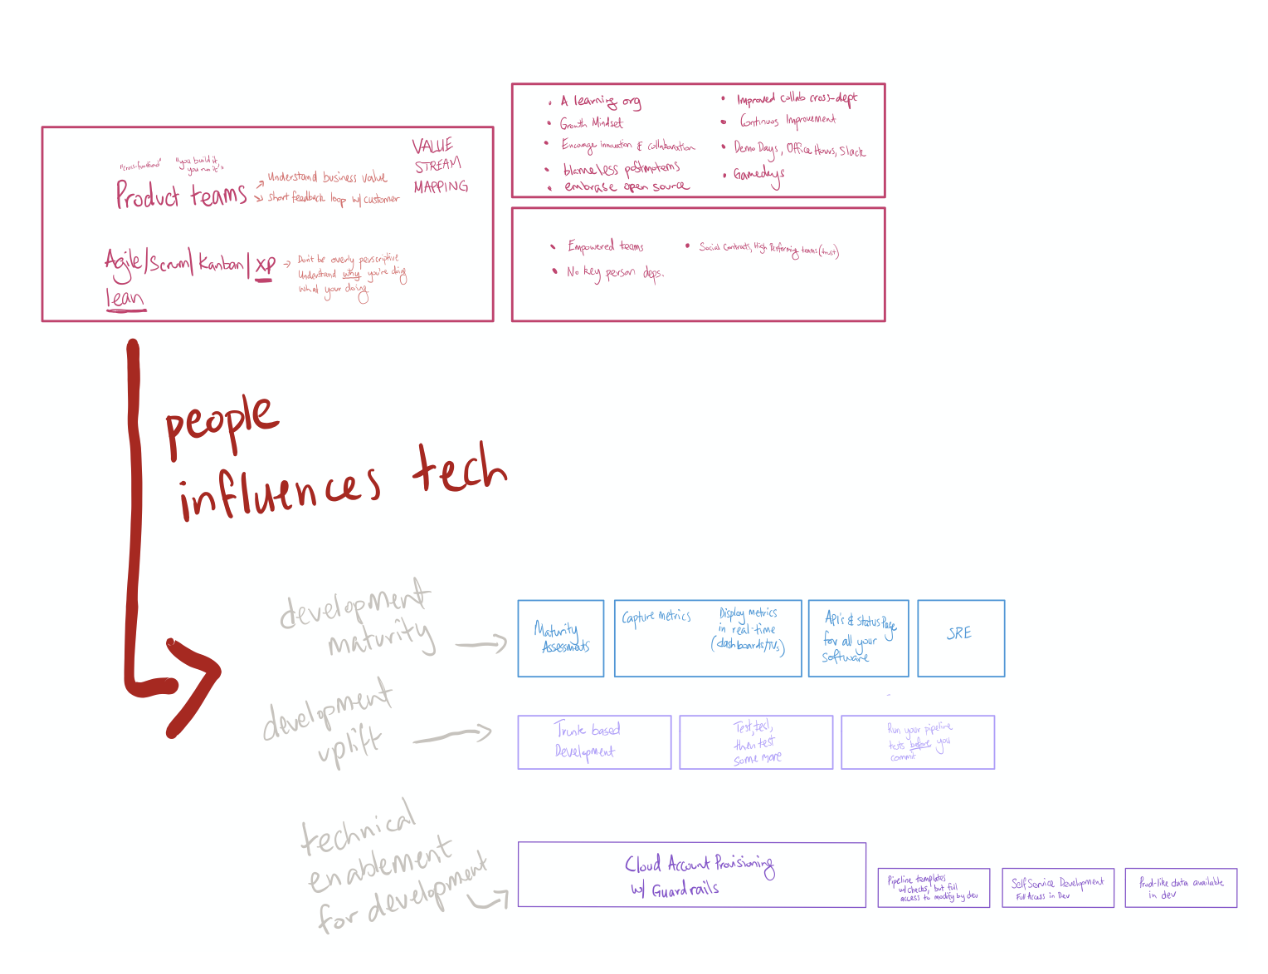 "cross-functional"
"you build it
you run it"
Product teams
Understand business value
short feedback loop w/ customer
VALUE
STREAM
MAPPING
Agile/Scrum/Kanban/XP
lean
Don't be overly perscriptive
Understand why you're doing
what your doing
• A learning org
• Growth Mindset
• Encourage Innovation & collaboration
• blameless postmortems
• embrase open source
• Improved collab cross-dept
• Continuos Improvement
• Demo Days, Office Hours, Slack
• Gamedays
• Empowered teams
• No key person deps.
• Social Contracts, High Performing teams (trust)
people
influences tech
development
maturity
Maturity
Assessments
Capture metrics
Display metrics
in real-time
(dashboards/TVs)
API's & Status Page
for all your
software
SRE
development
uplift
Trunk based
Development
Test, test,
then test
some more
Run your pipeline
tests before you
commit
technical
enablement
for development
Cloud Account Provisioning
w/ Guardrails
Pipeline templates
w/ checks, but full
access to modify by dev
Self Service Development
Full Access in Dev
Prod-like data available
in dev